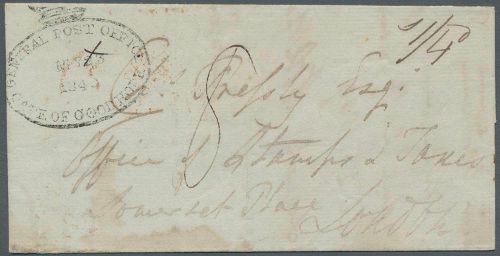 GENERAL POST OFFICE
184
CAPE OF GOOD HOPE
1/4d
8
Chs Pressly Esqr
Office of Stamps & Taxes
Somerset Place
London